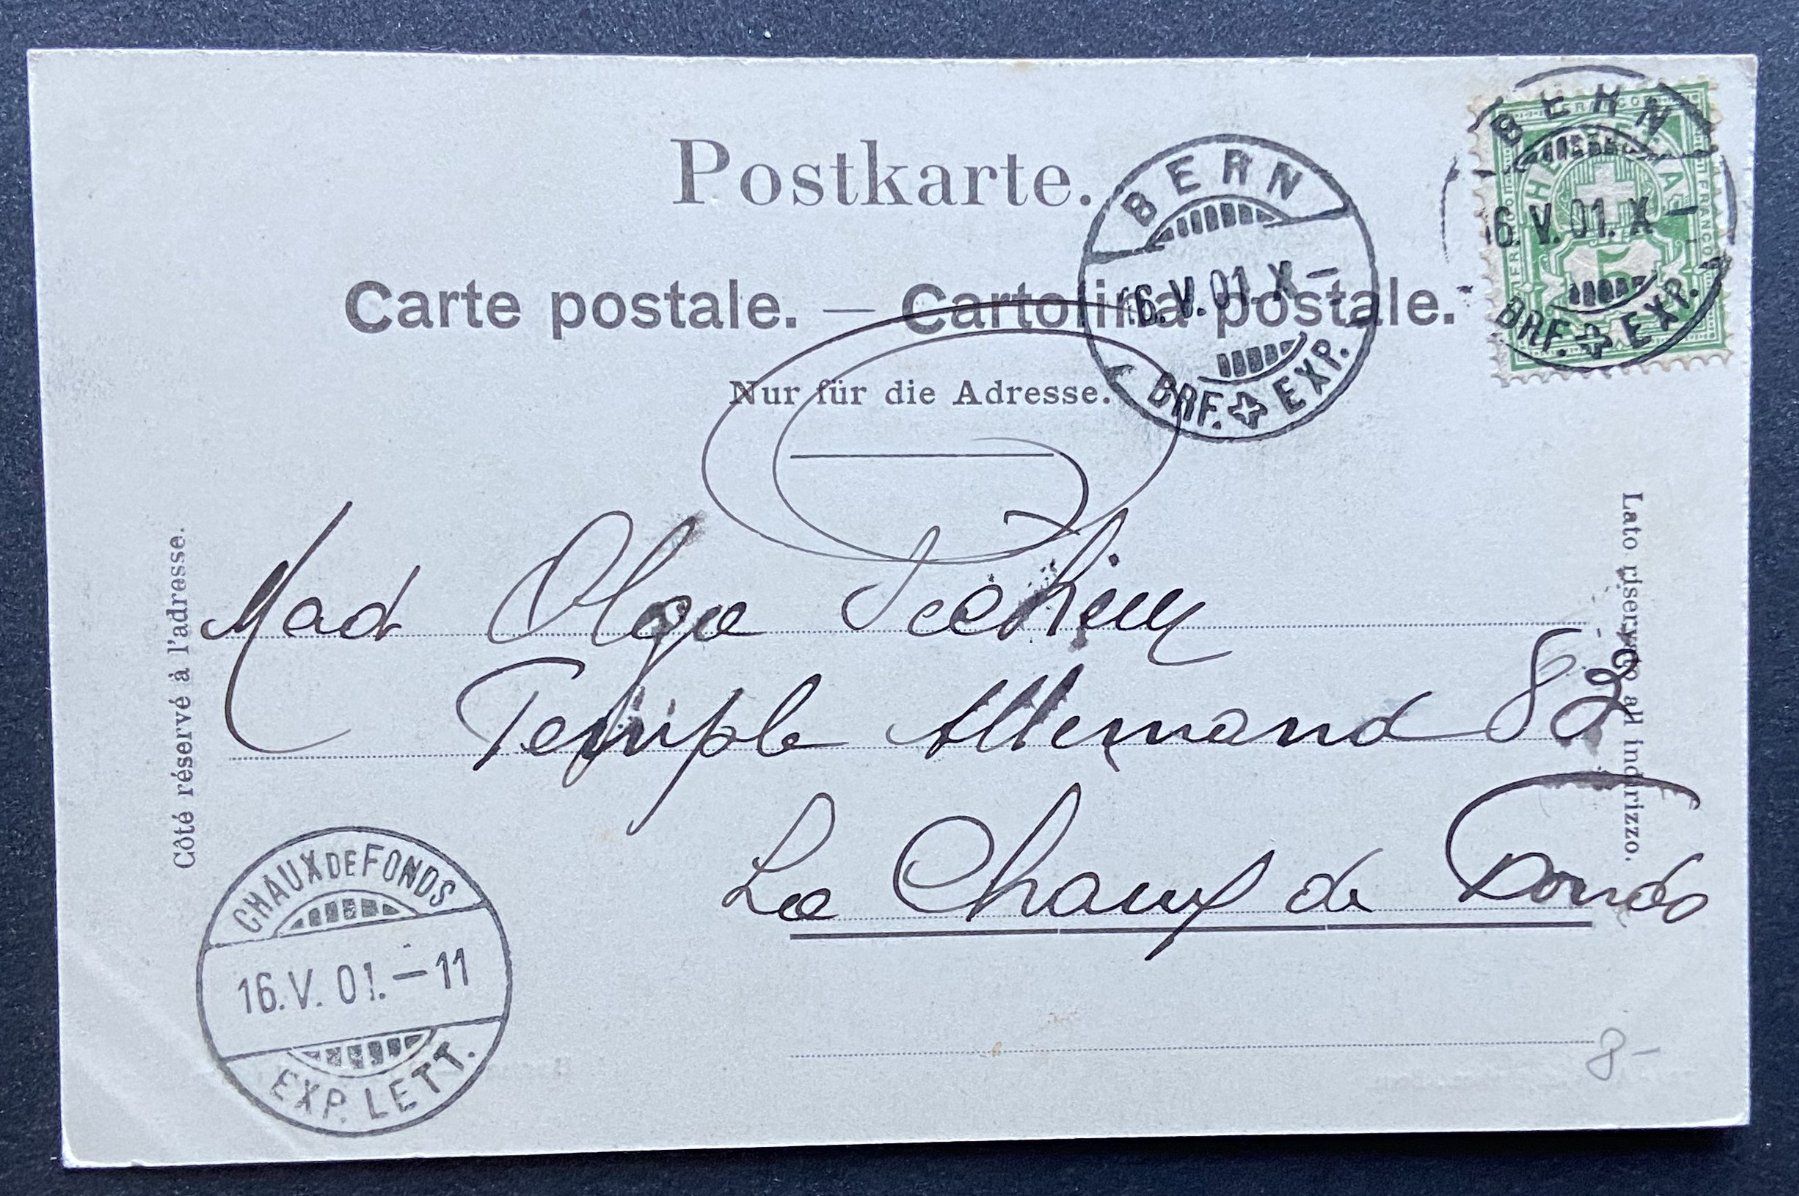 Postkarte.
Carte postale. — Cartolina postale.
Nur für die Adresse.
BERN
16.V.01.X–
BRF. EXP.
BERN
16.V.01.X–
BRF. EXP.
FRANCO
HELVETIA
FRANCO
5
Côté réservé à l'adresse.
Lato riservato all indirizzo.
Mad Olga
Temple Allemand 83
La Chaux de Fonds
CHAUX DE FONDS
16.V.01.–11
EXP. LETT.
8–